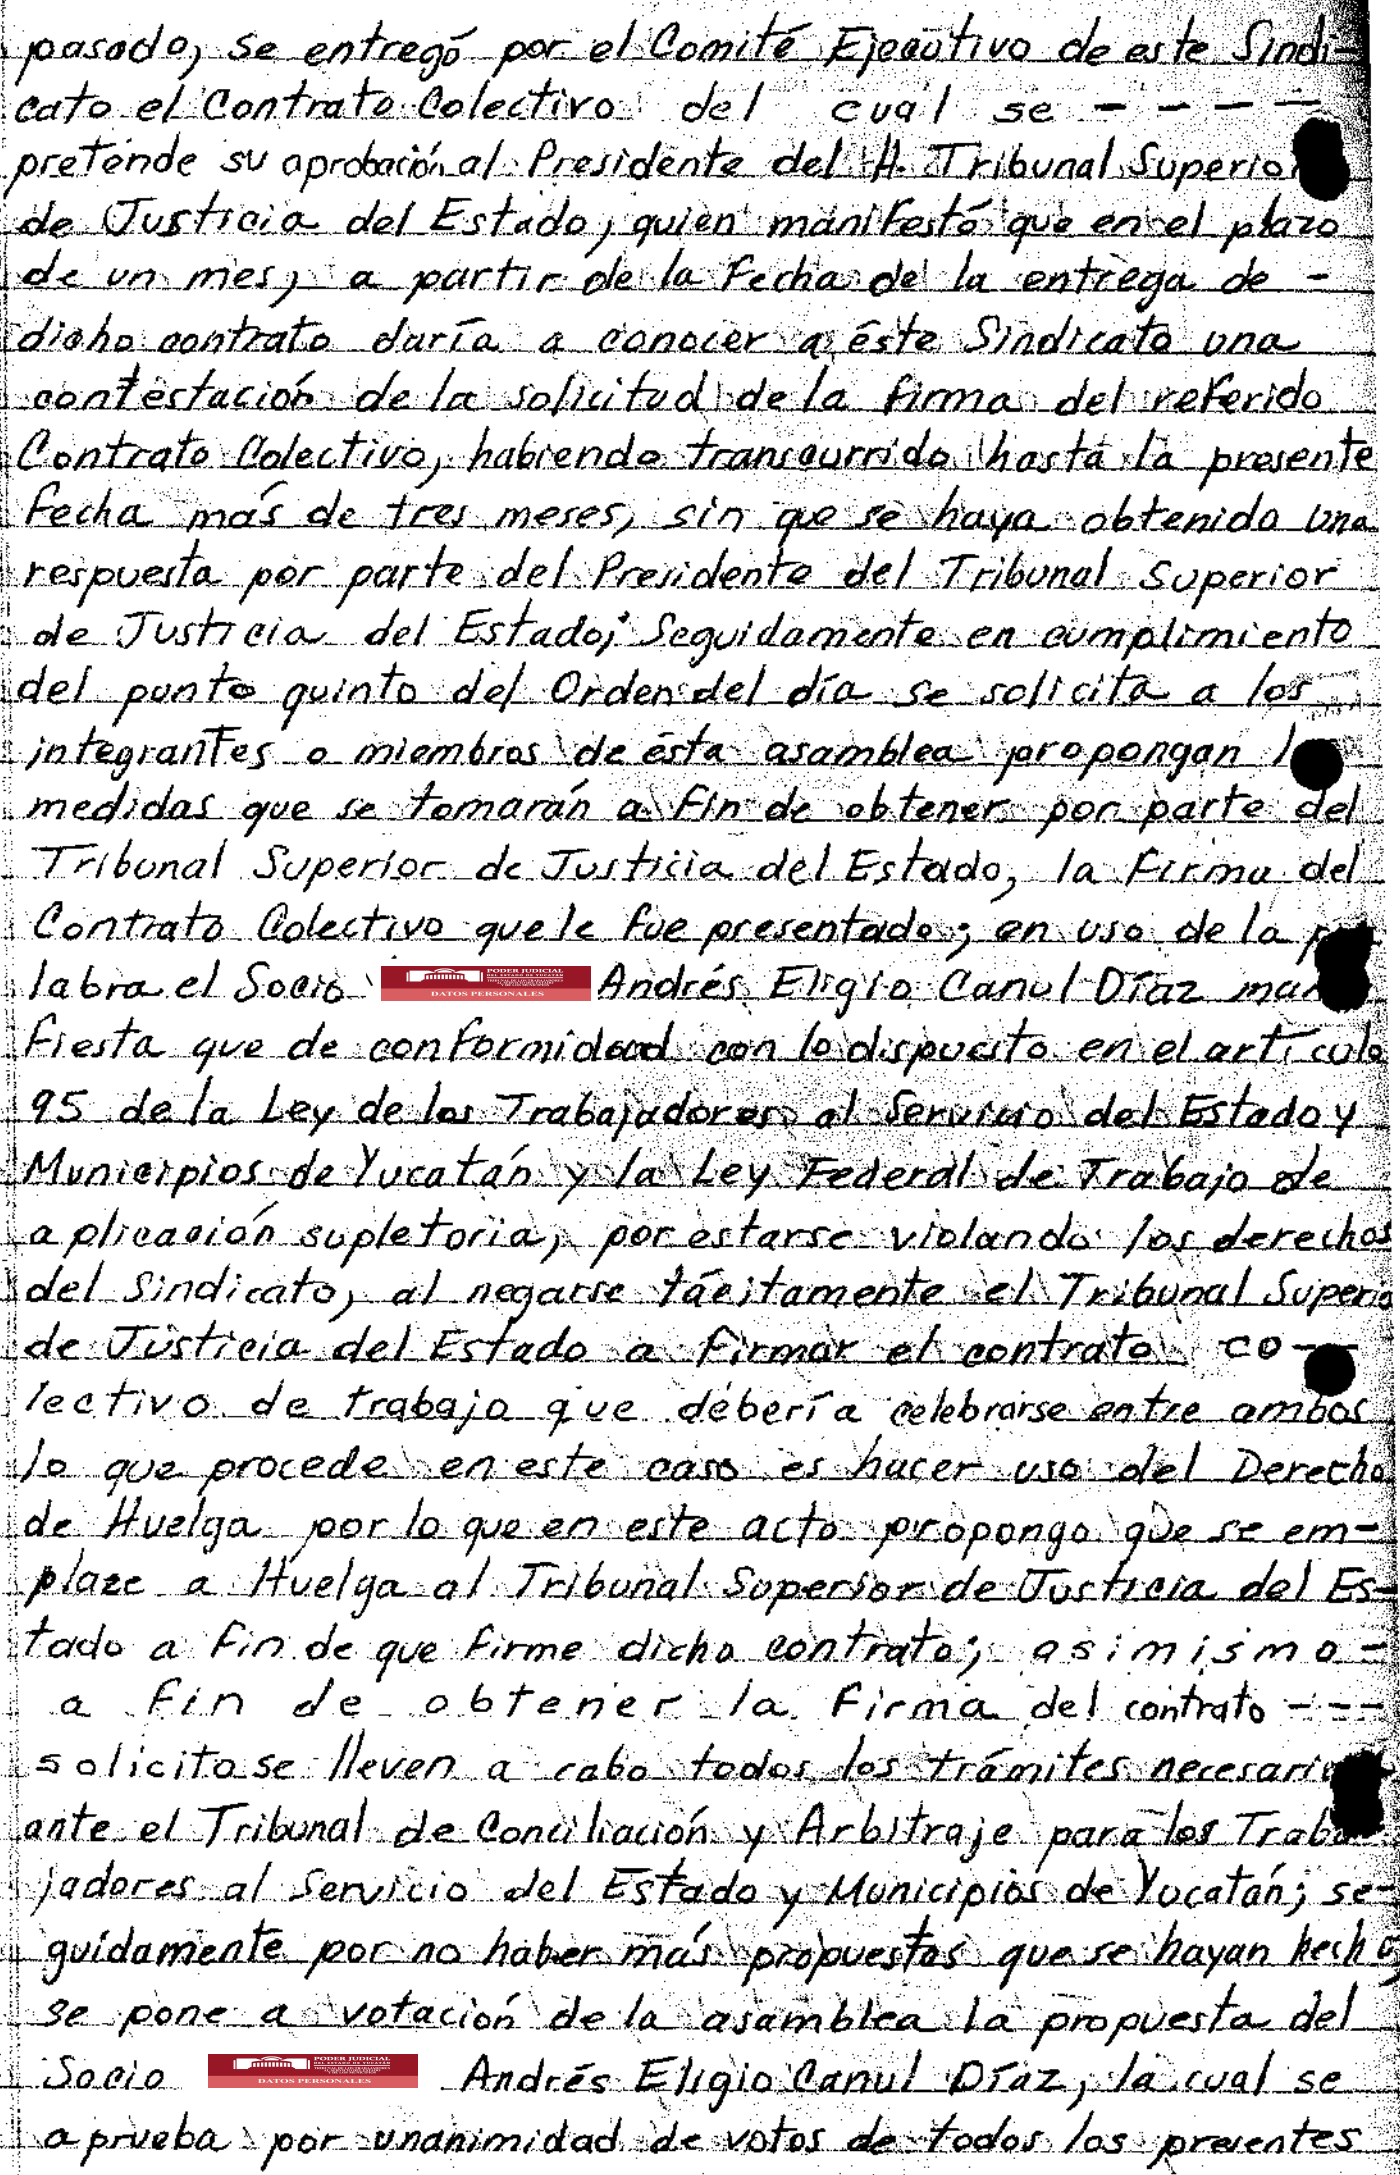 pasado, se entregó por el Comité Ejecutivo de este Sindi-
cato el Contrato Colectivo del cual se - - - -
preténde su aprobación al Presidente del H. Tribunal Superio
de Justicia del Estado, quien manifestó que en el plazo
de un mes, a partir de la fecha de la entrega de -
dicho contrato daría a conocer a éste Sindicato una
contestación de la solicitud de la firma del referido
Contrato Colectivo, habiendo transcurrido hasta la presente
fecha más de tres meses, sin que se haya obtenido una
respuesta por parte del Presidente del Tribunal Superior
de Justicia del Estado; Seguidamente en cumplimiento
del punto quinto del Orden del día se solicita a los
integrantes o miembros de ésta asamblea propongan l
medidas que se tomarán a fin de obtener por parte del
Tribunal Superior de Justicia del Estado, la firma del
Contrato Colectivo que le fue presentado; en uso de la p
labra el Socio PODER JUDICIAL DEL ESTADO DE YUCATÁN DATOS PERSONALES Andrés Eligio Canul Díaz man
fiesta que de conformidad con lo dispuesto en el artículo
95 de la Ley de los Trabajadores al Servicio del Estado y
Municipios de Yucatán y la Ley Federal de Trabajo de
aplicación supletoria, por estarse violando los derechos
del Sindicato, al negarse tácitamente el Tribunal Superio
de Justicia del Estado a firmar el contrato co-
lectivo de trabajo que debería celebrarse entre ambos
lo que procede en este caso es hacer uso del Derecho
de Huelga por lo que en este acto propongo que se em-
plaze a Huelga al Tribunal Superior de Justicia del Es-
tado a fin de que firme dicho contrato; asimismo -
a fin de obtener la firma del contrato - - -
solicito se lleven a cabo todos los trámites necesario
ante el Tribunal de Conciliación y Arbitraje para los Traba
jadores al Servicio del Estado y Municipios de Yucatán; se-
guidamente por no haber más propuestas que se hayan hecho,
se pone a votación de la asamblea la propuesta del
Socio PODER JUDICIAL DEL ESTADO DE YUCATÁN DATOS PERSONALES Andrés Eligio Canul Díaz, la cual se
aprueba por unanimidad de votos de todos los presentes